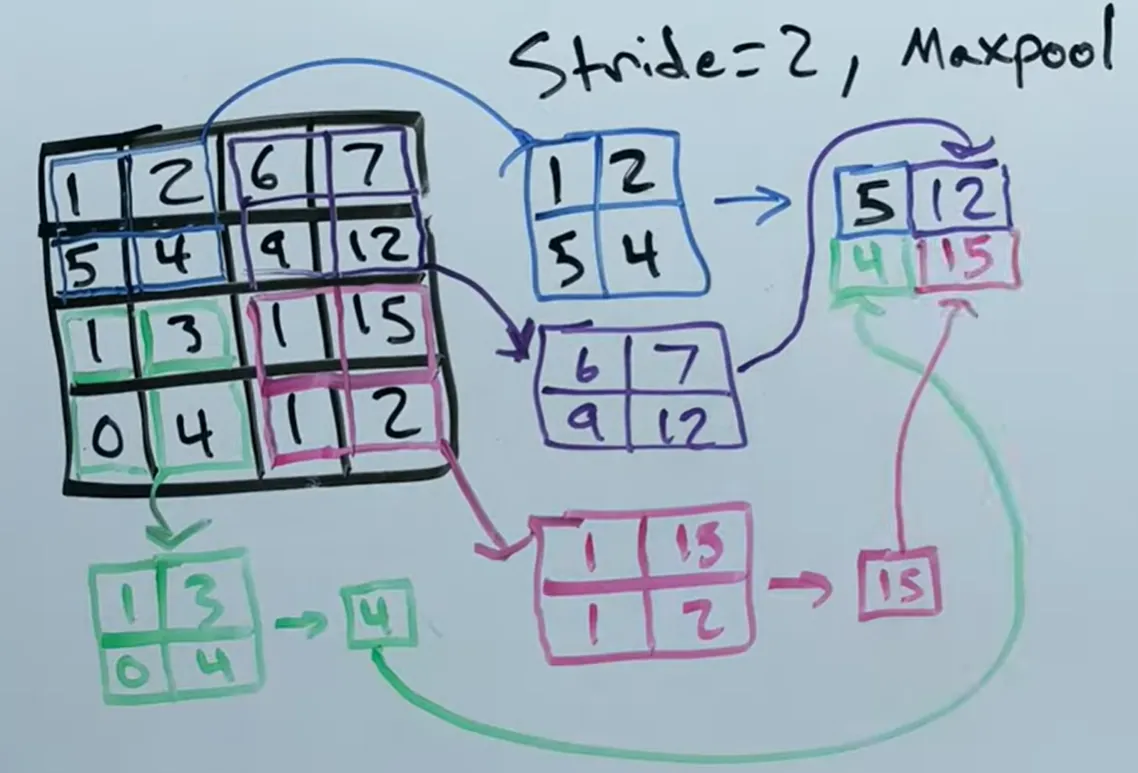 Stride=2, Maxpool
1 2 6 7
5 4 9 12
1 3 1 15
0 4 1 2
1 2
5 4
5 12
4 15
6 7
9 12
1 3
0 4
4
1 15
1 2
15